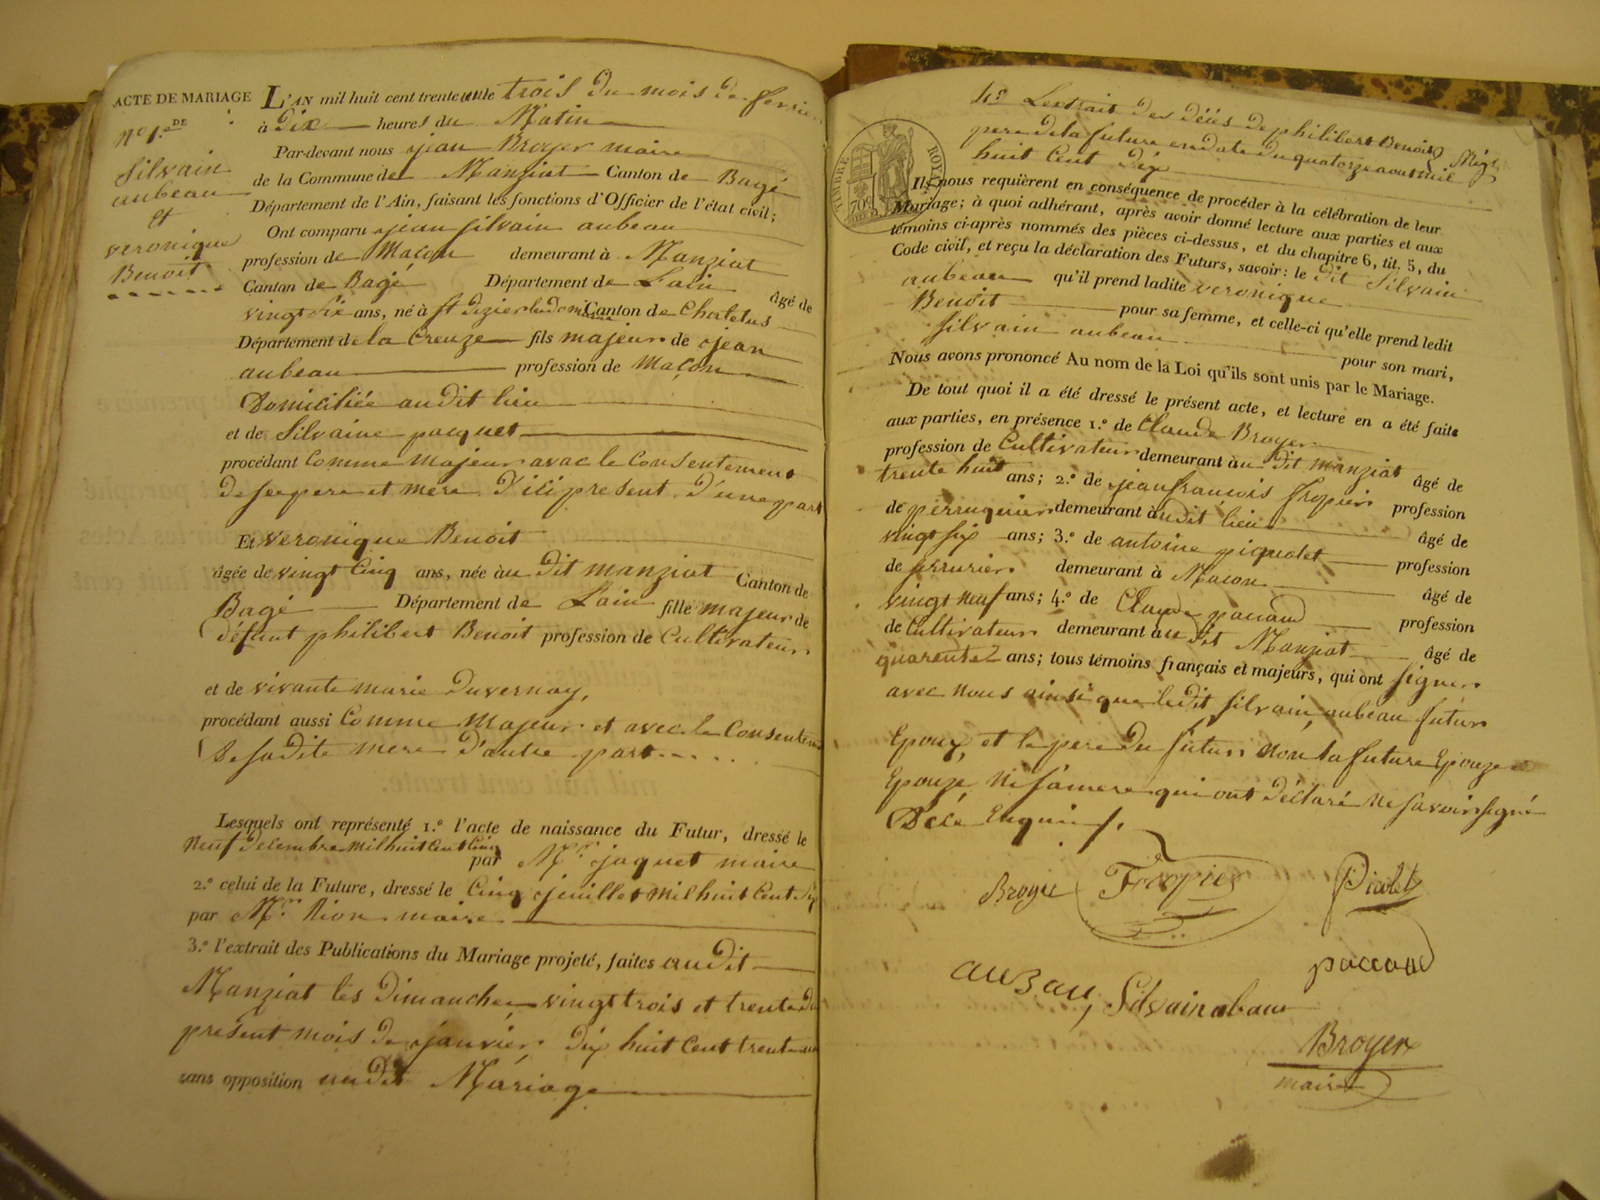 ACTE DE MARIAGE
N.o 1.er DE
Silvain
aubeau
et
veronique
Benoit
L'AN mil huit cent trente un le trois du mois de fevrier
à dix heures du Matin
Par-devant nous jean Broyer maire
de la Commune de Manziat Canton de Bagé
Département de l'Ain, faisant les fonctions d'Officier de l'état civil;
Ont comparu jean silvain aubeau
profession de Maçon demeurant à Manziat
Canton de Bagé Département de Lain âgé de
vingt six ans, né à st dizier Canton de Chatelus
Département de la Creuze fils majeur de jean
aubeau profession de Maçon
Domiciliée audit lieu
et de Silvaine pacquet
procédant Comme Majeur avec le Consentement
de ses pere et mere D'ici present, D'une part
Et veronique Benoit
âgée de vingt Cinq ans, née au dit manziat Canton de
Bagé Département de L'ain fille majeur de
défunt philibert Benoit profession de Cultivateur
et de vivante marie Duvernay,
procédant aussi Comme Majeur et avec le Consentem
De sadite mere D'autre part
Lesquels ont représenté 1.o l'acte de naissance du Futur, dressé le
Neuf Decembre mil huit Cent Cinq
par Mr. jaquet maire
2.o celui de la Future, dressé le Cinq juillet mil huit Cent six
par Mr. Rion maire
3.o l'extrait des Publications du Mariage projeté, faites audit
Manziat les Dimanches vingt trois et trente du
présent mois de janvier dix huit Cent trente un
sans opposition audit Mariage
4.o L'extrait des décès de philibert Benoit
pere de la future en date du quatorze aout mil
huit Cent dix
TIMBRE ROYAL
70c
Ils nous requièrent en conséquence de procéder à la célébration de leur
Mariage; à quoi adhérant, après avoir donné lecture aux parties et aux
témoins ci-après nommés des pièces ci-dessus, et du chapitre 6, tit. 5, du
Code civil, et reçu la déclaration des Futurs, savoir: le dit Silvain
aubeau qu'il prend ladite veronique
Benoit pour sa femme, et celle-ci qu'elle prend ledit
silvain aubeau pour son mari,
Nous avons prononcé Au nom de la Loi qu'ils sont unis par le Mariage.
De tout quoi il a été dressé le présent acte, et lecture en a été faite
aux parties, en présence 1.o de Claude Broyer
profession de Cultivateur demeurant au dit manziat âgé de
trente huit ans; 2.o de jean francois fropier profession
de perruquier demeurant audit lieu âgé de
vingt six ans; 3.o de antoine piquolet profession
de serrurier demeurant à Macon âgé de
vingt neuf ans; 4.o de Claude paccaud profession
de Cultivateur demeurant au dit Manziat âgé de
quarente ans; tous témoins français et majeurs, qui ont signer
avec nous ainsi que ledit silvain aubeau futur
Epoux, et le pere du futur, non la future Epouze
Epouze ni sa mere qui ont déclaré ne savoir signé
De ce Enquis.
Broyer Fropier Picolet
paccaud
auBau, Silvain abaux
Broyer
maire